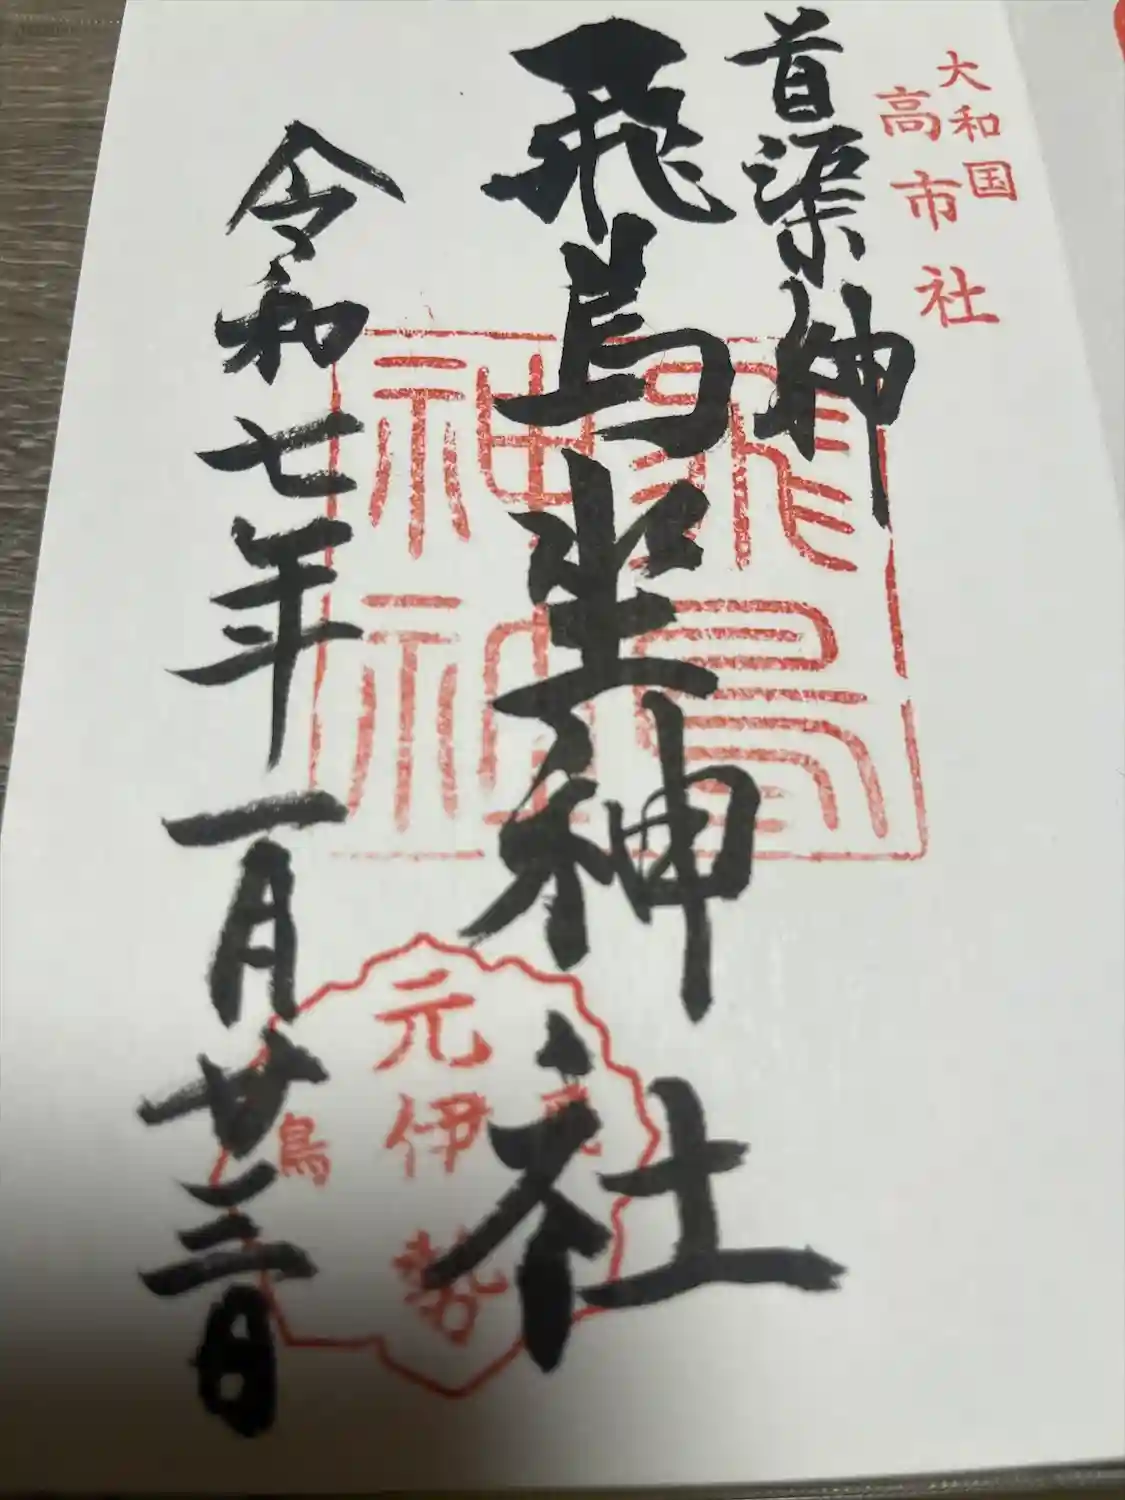 大和国
高市社
首渠神
飛鳥坐神社
飛鳥
神社
令和七年一月廿三日
元伊勢
飛
鳥